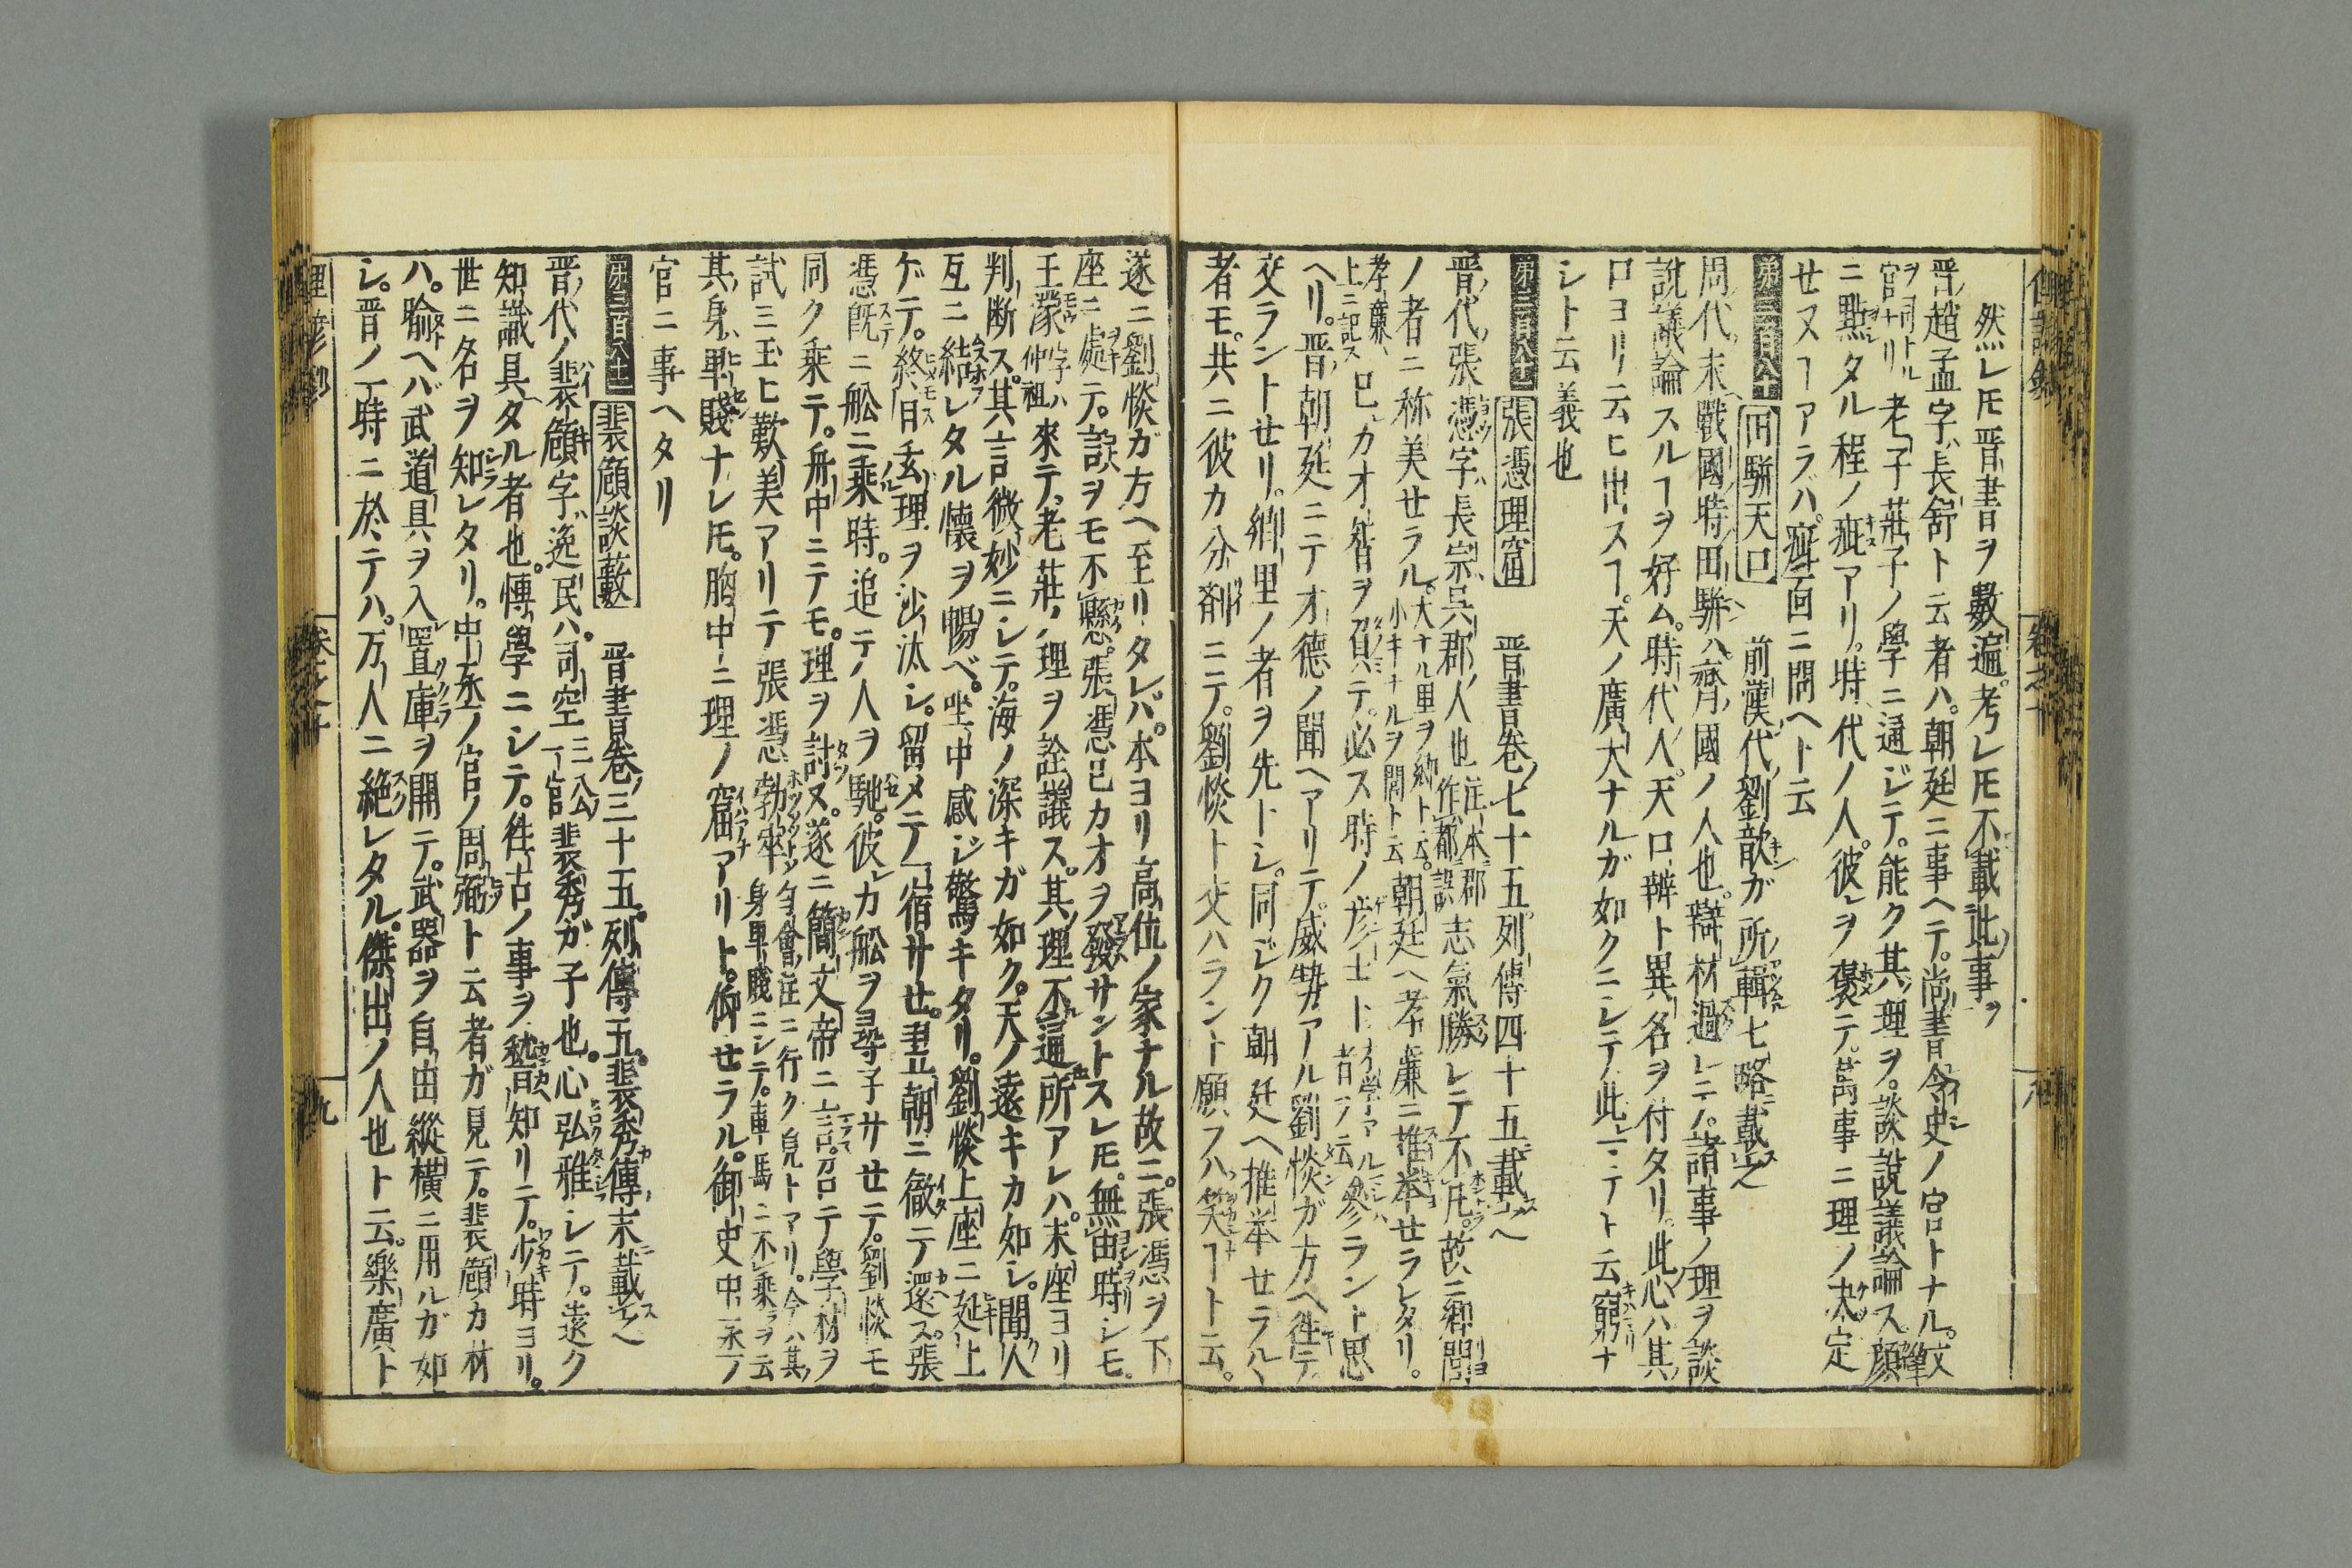 然レ𪜈晋書ヲ數遍考レ𪜈不載此事ヲ
晋趙孟字長舒ト云者ハ朝廷ニ事ヘテ尚書令史ノ官トナル
官ナリ老子莊子ノ學ニ通ジテ能ク其理ヲ談說議論ス顔
ニ點タル程ノ疵アリ時代ノ人彼ヲ褒テ萬事ニ理ノ决定
せヌヿアラハ疵面ニ問ヘト云
第三百八十 田騈天口 前漢代劉歆ガ所輯七略載之
周代末戰國時田騈ハ齊國ノ人也辯材過レテ諸事ノ理ヲ談
說議論スルヿヲ好ム時代人天口辨ト異名ヲ付タリ此心ハ其
口ヨリ云ヒ出スヿ天ノ廣大ナルガ如クニシテ此ニテト云窮ナ
シト云義也
第三百八十一 張憑理窟 晋書卷七十五列傳四十五載之
晋代張憑字長宗呉郡人也 注本郡作都誤 志氣勝レテ不凡故ニ郷閭
ノ者ニ称美せラル 大ナル里ヲ郷ト云小キナルヲ閭ト云 朝廷ヘ孝廉ニ推挙せラレタリ
孝廉ハ上ニ記ス 己カオ智ヲ負テ必ス時ノ彦士ト 才学アル者ヲ云 參ラント思
ヘリ晋朝廷ニテオ德ノ聞ヘアリテ威勢アル劉惔ガ方ヘ徃テ
交ラントせリ郷里ノ者ヲ先トシ同ジク朝廷ヘ推挙せラルヽ
者モ共ニ彼カ分劑ニテ劉惔ト交ハラント願フハ笑ヿト云
遂ニ劉惔ガ方ヘ至リタレバ本ヨリ高位ノ家ナル故ニ張憑ヲ下
座ニ處テ誤ヲモ不懸張憑己カオヲ發サントスレ𪜈無由時シモ
王濛字ハ仲祖來テ老莊ノ理ヲ詮議ス其理不通所アレハ末座ヨリ
判断ス其言微妙ニレテ海ノ深キガ如ク天ノ遠キカ如シ聞人
互ニ結レタル懐ヲ暢ベ坐中感ジ驚キタリ劉惔上座ニ延上
ゲテ終日玄理ヲ沙汰シ留メテ一宿サせ翌朝ニ徹テ還ス張
憑既ニ舩ニ乗時追テノ人ヲ馳彼カ舩ヲ尋子サせテ劉惔モ
同ク乗テ舟中ニテモ理ヲ討ヌ遂ニ簡文帝ニ言召テ學材ヲ
試ミ玉ヒ歎美アリテ張憑勃窣 身卑賤ニシテ車馬ニ不乗ヲ云
其身ハ卑賤ナレ𪜈胸中ニ理ノ窟アリト仰せラル御史中丞ノ
官ニ事ヘタリ
第三百八十二 裴頠談藪 晋書卷三十五列傳五裴秀傳末載之
晋代ノ裴頠字逸民ハ司空 三公ノ一官 裴秀ガ子也心弘雅ニシテ遠ク
知識具タル者也博學ニシテ徃古ノ事ヲ嵆知リテ少時ヨリ
世ニ名ヲ知レタリ中丞ノ官ノ周弼ト云者ガ見テ裴頠カ材
ハ喩ヘバ武道具ヲ入置庫ヲ開テ武器ヲ自由縱横ニ用ルガ如
シ晋ノ一時ニ於テハ万人ニ絶レタル傑出ノ人也ト云樂廣ト
卷之十
九